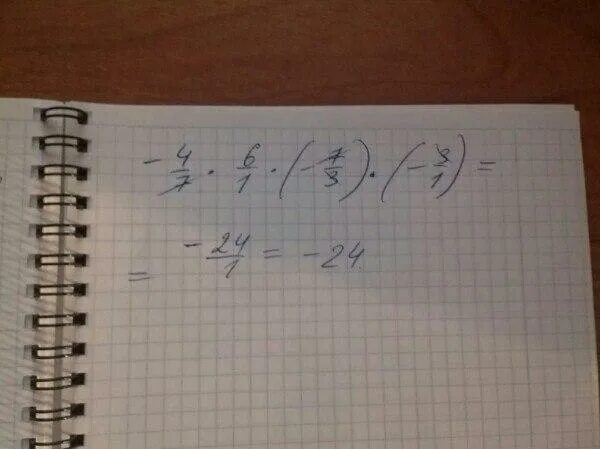 -4/7 · 6/1 · (-7/3) · (-3/1) =
= -24/1 = -24